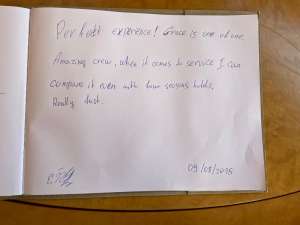 Perfect experience! Grace is one of one.
Amazing crew, when it comes to service I can
compare it even with four seasons hotels,
Really
09/08/2025